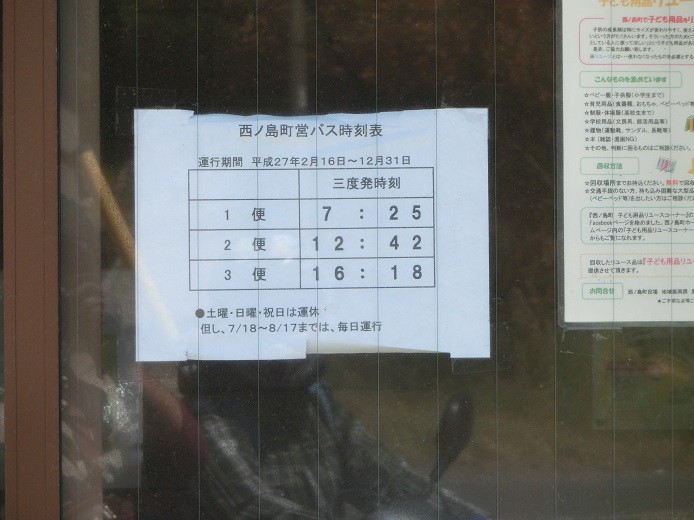 西ノ島町営バス時刻表
運行期間 平成27年2月16日～12月31日
三度発時刻
1 便 7 : 25
2 便 12 : 42
3 便 16 : 18
●土曜・日曜・祝日は運休
但し、7/18～8/17までは、毎日運行
子ども用品リユー
西ノ島町で子ども用品
こんなものを集めています
☆ベビー服・子供服(小学生まで)
☆育児用品(食器類、おもちゃ、ベビーベッド
☆制服・体操服(高校生まで)
☆学校用品(文房具、部活用品等)
☆履物(運動靴、サンダル、長靴等)
☆本(雑誌・漫画NG)
☆その他、判断に困るものはご相談ください。
回収方法
☆回収場所までお持込ください。無料で回
☆交通手段のない方、持ち込み困難な大型品
(ベビーベッド等)を出したい方はご相談くだ
『西ノ島町 子ども用品リユースコーナー』の
Facebookページを始めました。西ノ島町ホー
ムページ内の『子ども用品リユースコーナー
からもご覧になれます。
回収したリユース品は『子ども用品リユ
提供させて頂きます。
お問合せ 西ノ島町役場